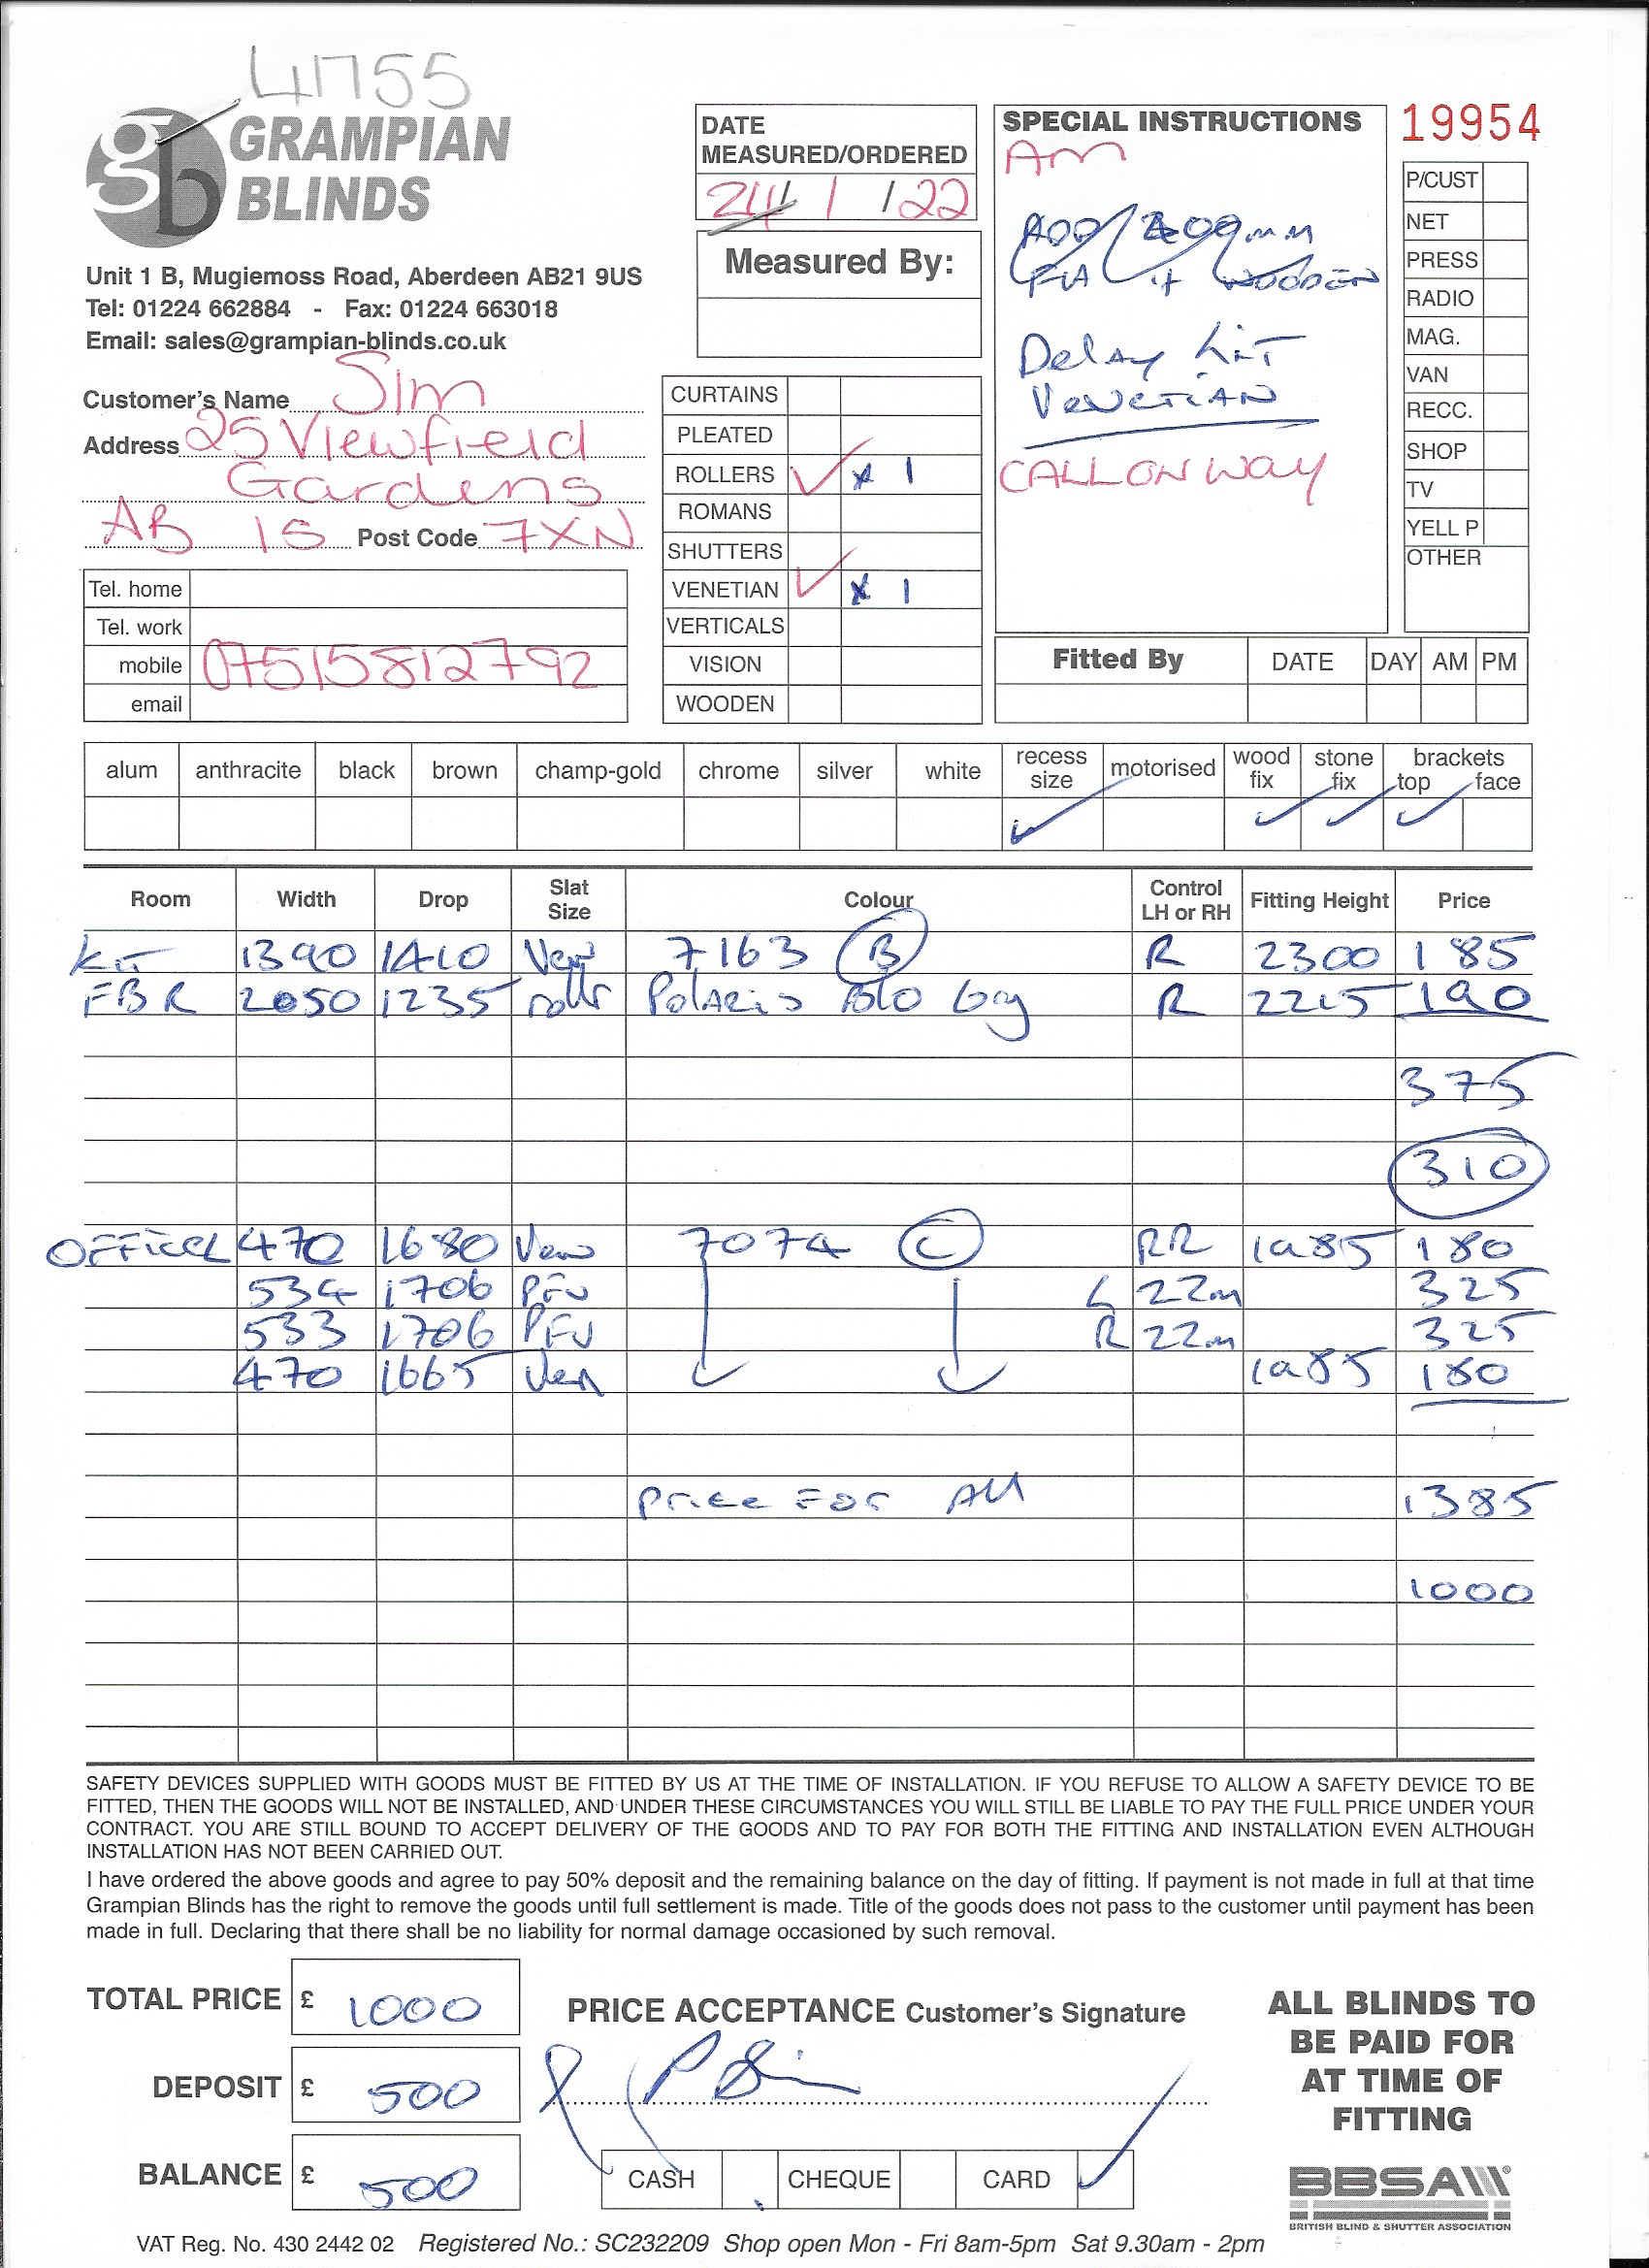 41755
gb GRAMPIAN BLINDS
Unit 1 B, Mugiemoss Road, Aberdeen AB21 9US
Tel: 01224 662884 - Fax: 01224 663018
Email: sales@grampian-blinds.co.uk
Customer's Name Sim
Address 25 Viewfield
Gardens
AB 15 Post Code 7XN
Tel. home
Tel. work
mobile 07515812792
email
DATE
MEASURED/ORDERED
24/1/22
Measured By:
CURTAINS
PLEATED
ROLLERS ✓ x 1
ROMANS
SHUTTERS
VENETIAN ✓ x 1
VERTICALS
VISION
WOODEN
SPECIAL INSTRUCTIONS
AM
ADD 400mm
if WOODEN
Delay Kit
VENETIAN
CALL ON WAY
19954
P/CUST
NET
PRESS
RADIO
MAG.
VAN
RECC.
SHOP
TV
YELL P
OTHER
Fitted By DATE DAY AM PM
alum anthracite black brown champ-gold chrome silver white recess size motorised wood fix stone fix brackets top face
✓ ✓ ✓ ✓
Room Width Drop Slat Size Colour Control LH or RH Fitting Height Price
Kit 1390 1410 Ven 7163 B R 2300 185
FBR 2050 1235 rollr Polaris Gry R 2215 190
375
310
OFFICE 470 1680 Ven 7074 C RR 1985 180
534 1706 PFV L 22m 325
533 1706 PFV R 22m 325
470 1665 Ven 1985 180
Price FOR All 1385
1000
SAFETY DEVICES SUPPLIED WITH GOODS MUST BE FITTED BY US AT THE TIME OF INSTALLATION. IF YOU REFUSE TO ALLOW A SAFETY DEVICE TO BE
FITTED, THEN THE GOODS WILL NOT BE INSTALLED, AND UNDER THESE CIRCUMSTANCES YOU WILL STILL BE LIABLE TO PAY THE FULL PRICE UNDER YOUR
CONTRACT. YOU ARE STILL BOUND TO ACCEPT DELIVERY OF THE GOODS AND TO PAY FOR BOTH THE FITTING AND INSTALLATION EVEN ALTHOUGH
INSTALLATION HAS NOT BEEN CARRIED OUT.
I have ordered the above goods and agree to pay 50% deposit and the remaining balance on the day of fitting. If payment is not made in full at that time
Grampian Blinds has the right to remove the goods until full settlement is made. Title of the goods does not pass to the customer until payment has been
made in full. Declaring that there shall be no liability for normal damage occasioned by such removal.
TOTAL PRICE £ 1000
DEPOSIT £ 500
BALANCE £ 500
PRICE ACCEPTANCE Customer's Signature
P Sim
CASH CHEQUE CARD ✓
ALL BLINDS TO
BE PAID FOR
AT TIME OF
FITTING
BBSA
BRITISH BLIND & SHUTTER ASSOCIATION
VAT Reg. No. 430 2442 02 Registered No.: SC232209 Shop open Mon - Fri 8am-5pm Sat 9.30am - 2pm